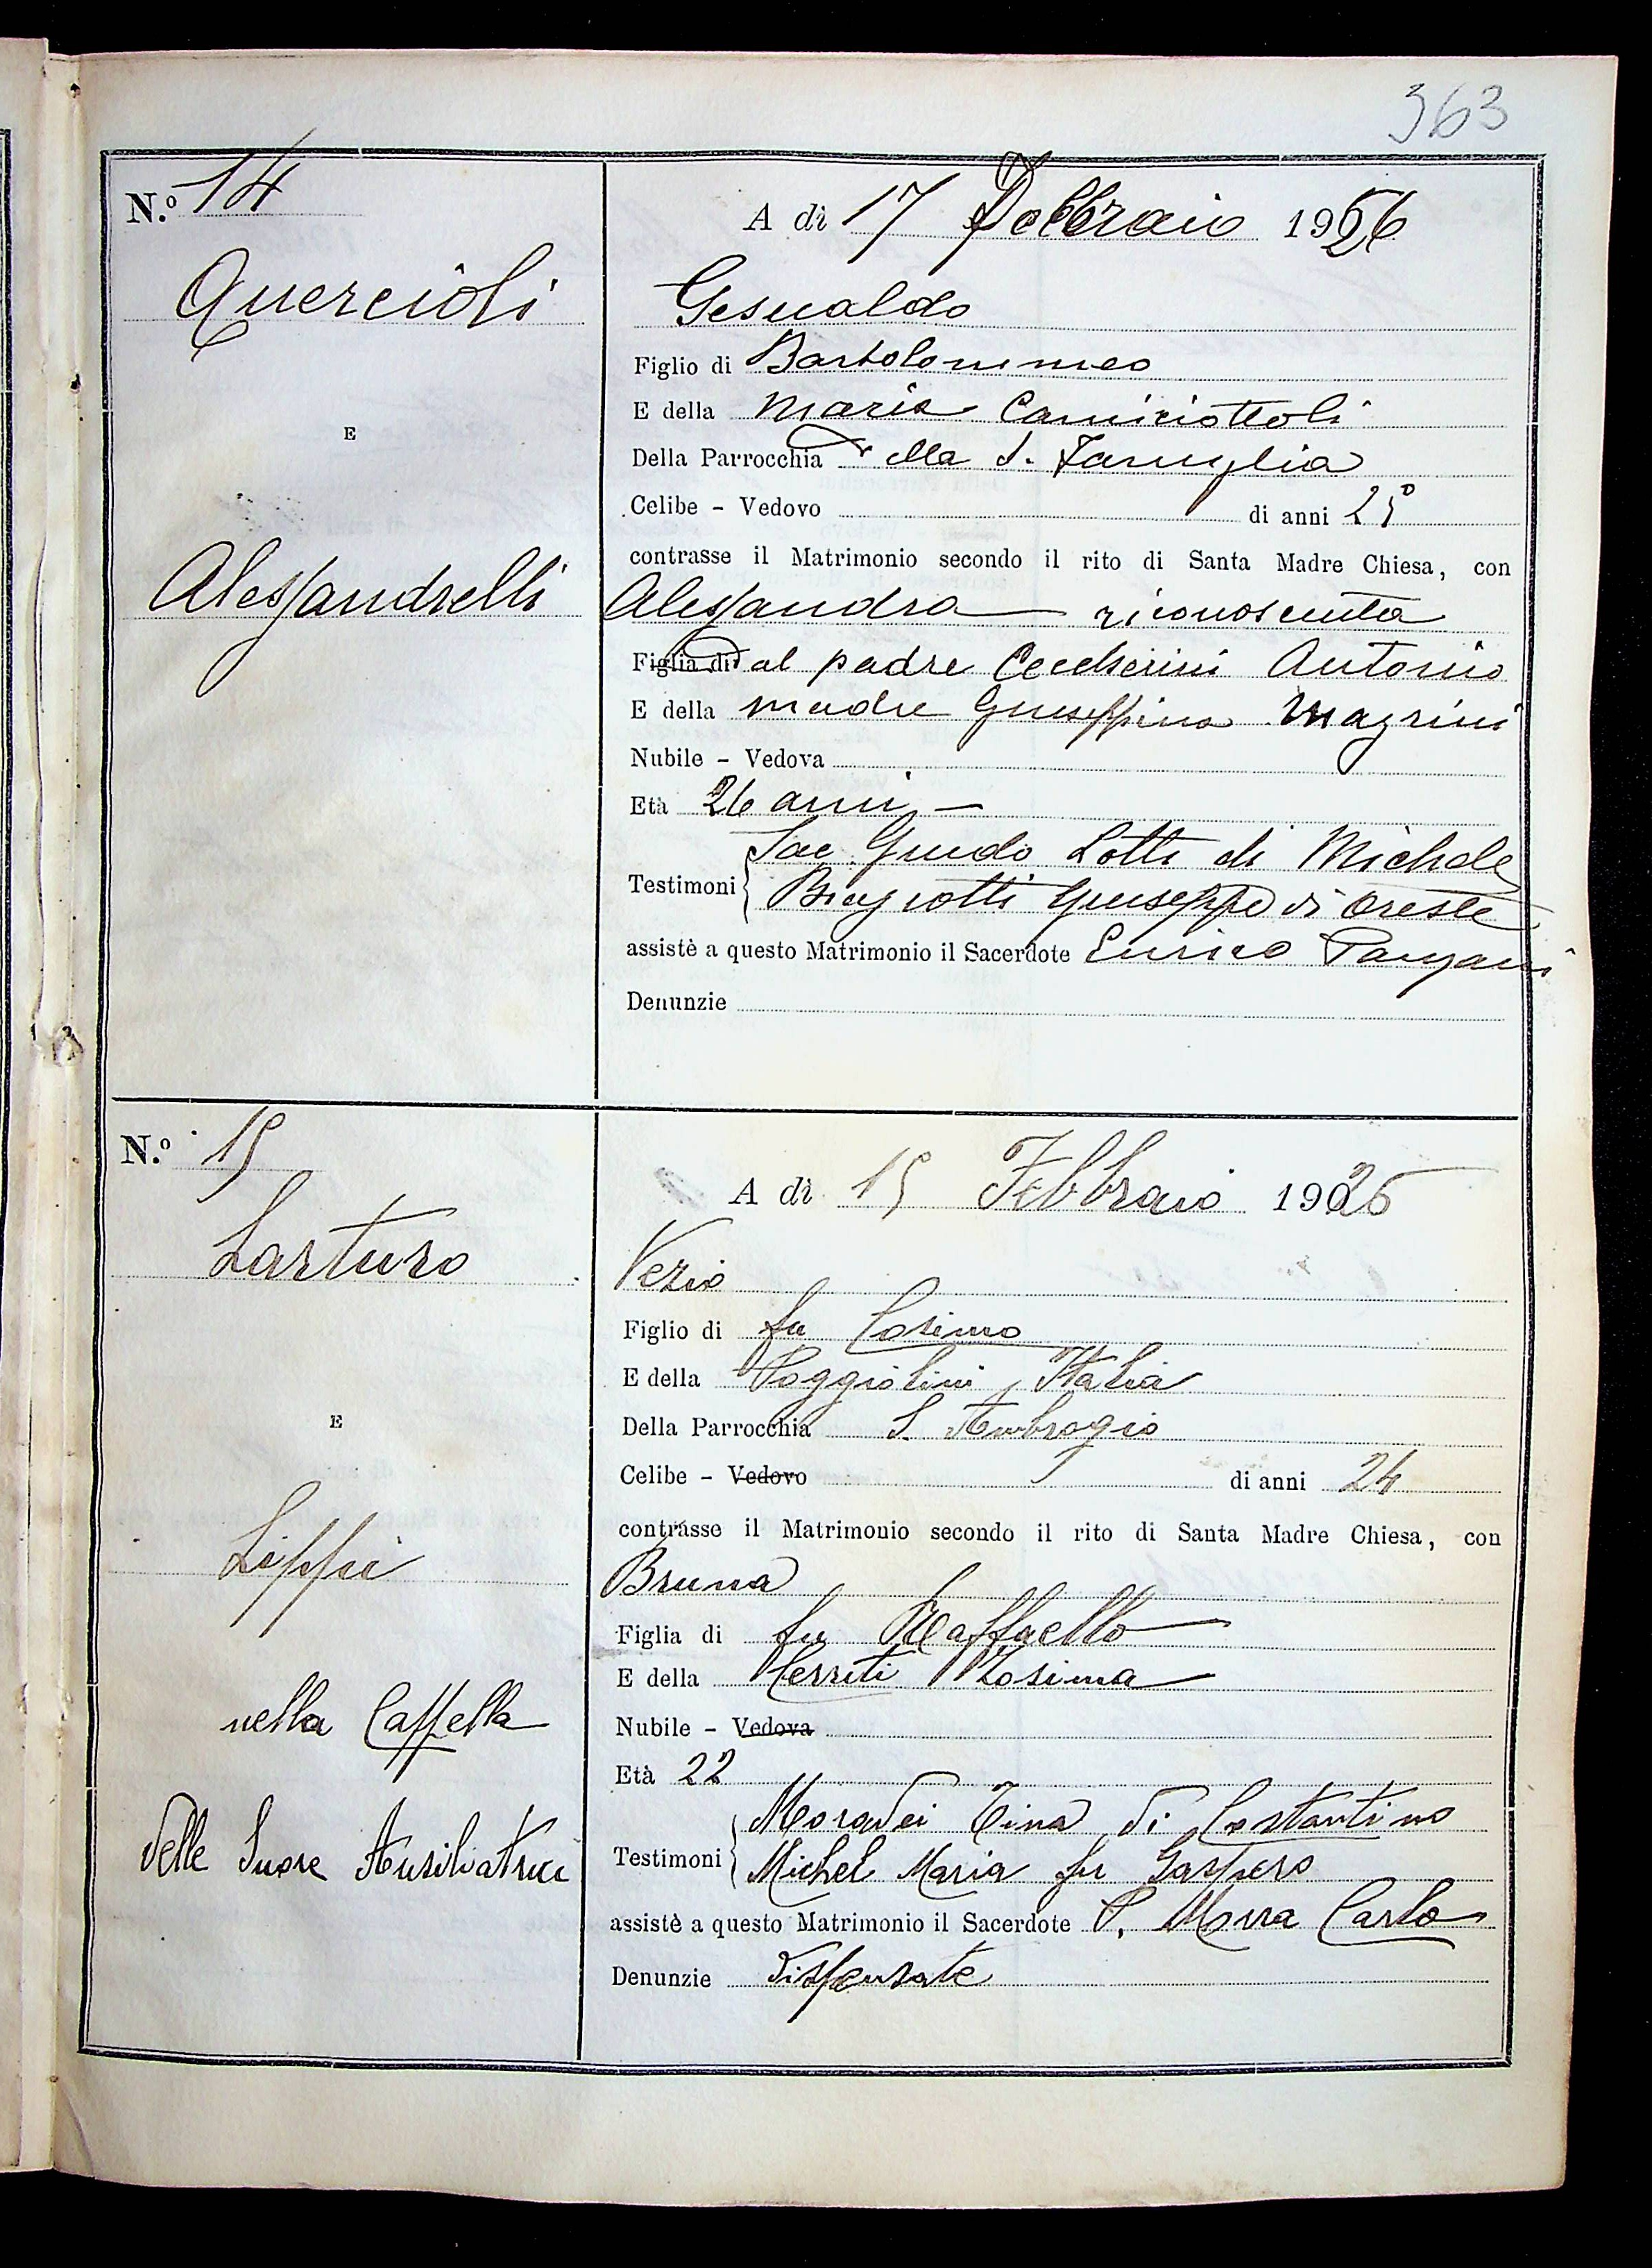 363
N.º 14
A dì 17 Febbraio 1926
Quercioli
Gesualdo
Figlio di Bartolommeo
E della Maria Camiciottoli
E
Della Parrocchia della S. Famiglia
Celibe - Vedovo di anni 25
contrasse il Matrimonio secondo il rito di Santa Madre Chiesa, con
Alessandrelli
Alessandra riconosciuta
Figlia di dal padre Ceccherini Antonio
E della madre Giuseppina Magrini
Nubile - Vedova
Età 26 anni
Sac. Guido Lotti di Michele
Testimoni
Biagiotti Giuseppe di Oreste
assistè a questo Matrimonio il Sacerdote Enrico
Denunzie
N.º 15
A dì 15 Febbraio 1926
Larturo
Vezio
Figlio di fu Cosimo
E della Poggiolini Italia
E
Della Parrocchia S. Ambrogio
Celibe - Vedovo di anni 24
contrasse il Matrimonio secondo il rito di Santa Madre Chiesa, con
Lippi
Bruna
Figlia di fu Raffaello
E della Cerreti Zosima
nella Cappella
Nubile - Vedova
Età 22
delle Suore Ausiliatrici
Moradei Tina di Costantino
Testimoni
Michel Maria fu Gaspero
assistè a questo Matrimonio il Sacerdote P. Morra Carlo
Denunzie dispensate